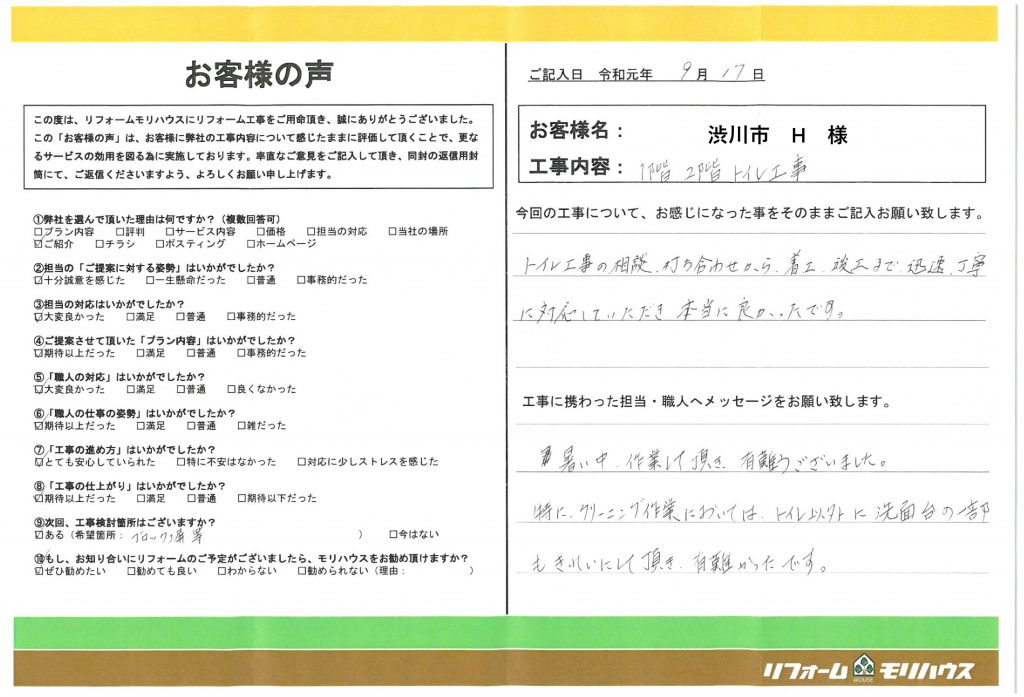 お客様の声
この度は、リフォームモリハウスにリフォーム工事をご用命頂き、誠にありがとうございました。
この「お客様の声」は、お客様に弊社の工事内容について感じたままに評価して頂くことで、更な
るサービスの効用を図る為に実施しております。率直なご意見をご記入して頂き、同封の返信用封
筒にて、ご返信くださいますよう、よろしくお願い申し上げます。
①弊社を選んで頂いた理由は何ですか？（複数回答可）
□プラン内容 □評判 □サービス内容 □価格 □担当の対応 □当社の場所
☑ご紹介 □チラシ □ポスティング □ホームページ
②担当の「ご提案に対する姿勢」はいかがでしたか？
☑十分誠意を感じた □一生懸命だった □普通 □事務的だった
③担当の対応はいかがでしたか？
☑大変良かった □満足 □普通 □事務的だった
④ご提案させて頂いた「プラン内容」はいかがでしたか？
☑期待以上だった □満足 □普通 □事務的だった
⑤「職人の対応」はいかがでしたか？
☑大変良かった □満足 □普通 □良くなかった
⑥「職人の仕事の姿勢」はいかがでしたか？
☑期待以上だった □満足 □普通 □雑だった
⑦「工事の進め方」はいかがでしたか？
☑とても安心していられた □特に不安はなかった □対応に少しストレスを感じた
⑧「工事の仕上がり」はいかがでしたか？
☑期待以上だった □満足 □普通 □期待以下だった
⑨次回、工事検討箇所はございますか？
☑ある（希望箇所：ブロック塀等 ） □今はない
⑩もし、お知り合いにリフォームのご予定がございましたら、モリハウスをお勧め頂けますか？
☑ぜひ勧めたい □勧めても良い □わからない □勧められない（理由： ）
ご記入日 令和元年 9月 17日
お客様名： 渋川市 H 様
工事内容：1階 2階 トイレ工事
今回の工事について、お感じになった事をそのままご記入お願い致します。
トイレ工事の相談、打ち合わせから、着工、竣工まで、迅速、丁寧
に対応していただき 本当に良かったです。
工事に携わった担当・職人へメッセージをお願い致します。
暑い中、作業して頂き、有難うございました。
特に、クリーニング作業においては、トイレ以外に洗面台の一部
もきれいにして頂き、有難かったです。
リフォーム HOUSE モリハウス